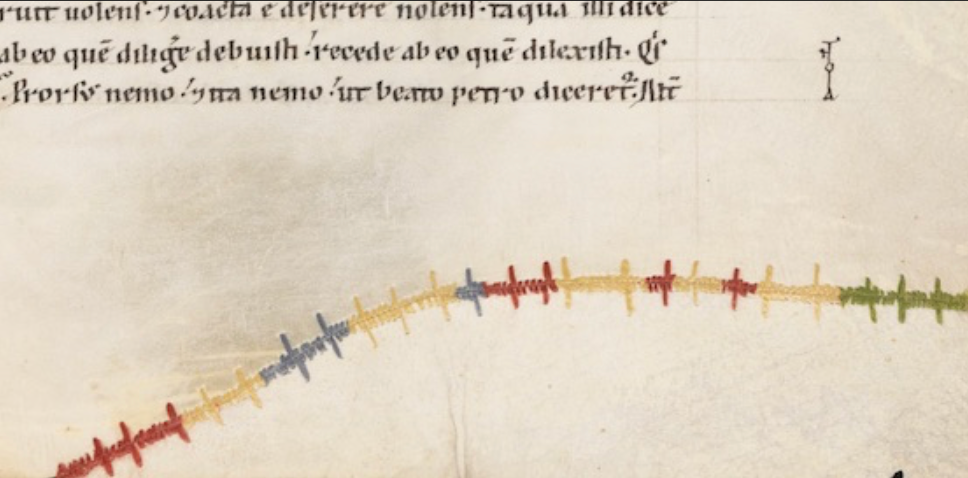 uolens. ⁊ coacta e deserere nolens. ta qua illi dice
ab eo quē dilige debuisti. recede ab eo quē dilexisti.
Prorsus nemo. ⁊ ita nemo. ut beato petro diceret.